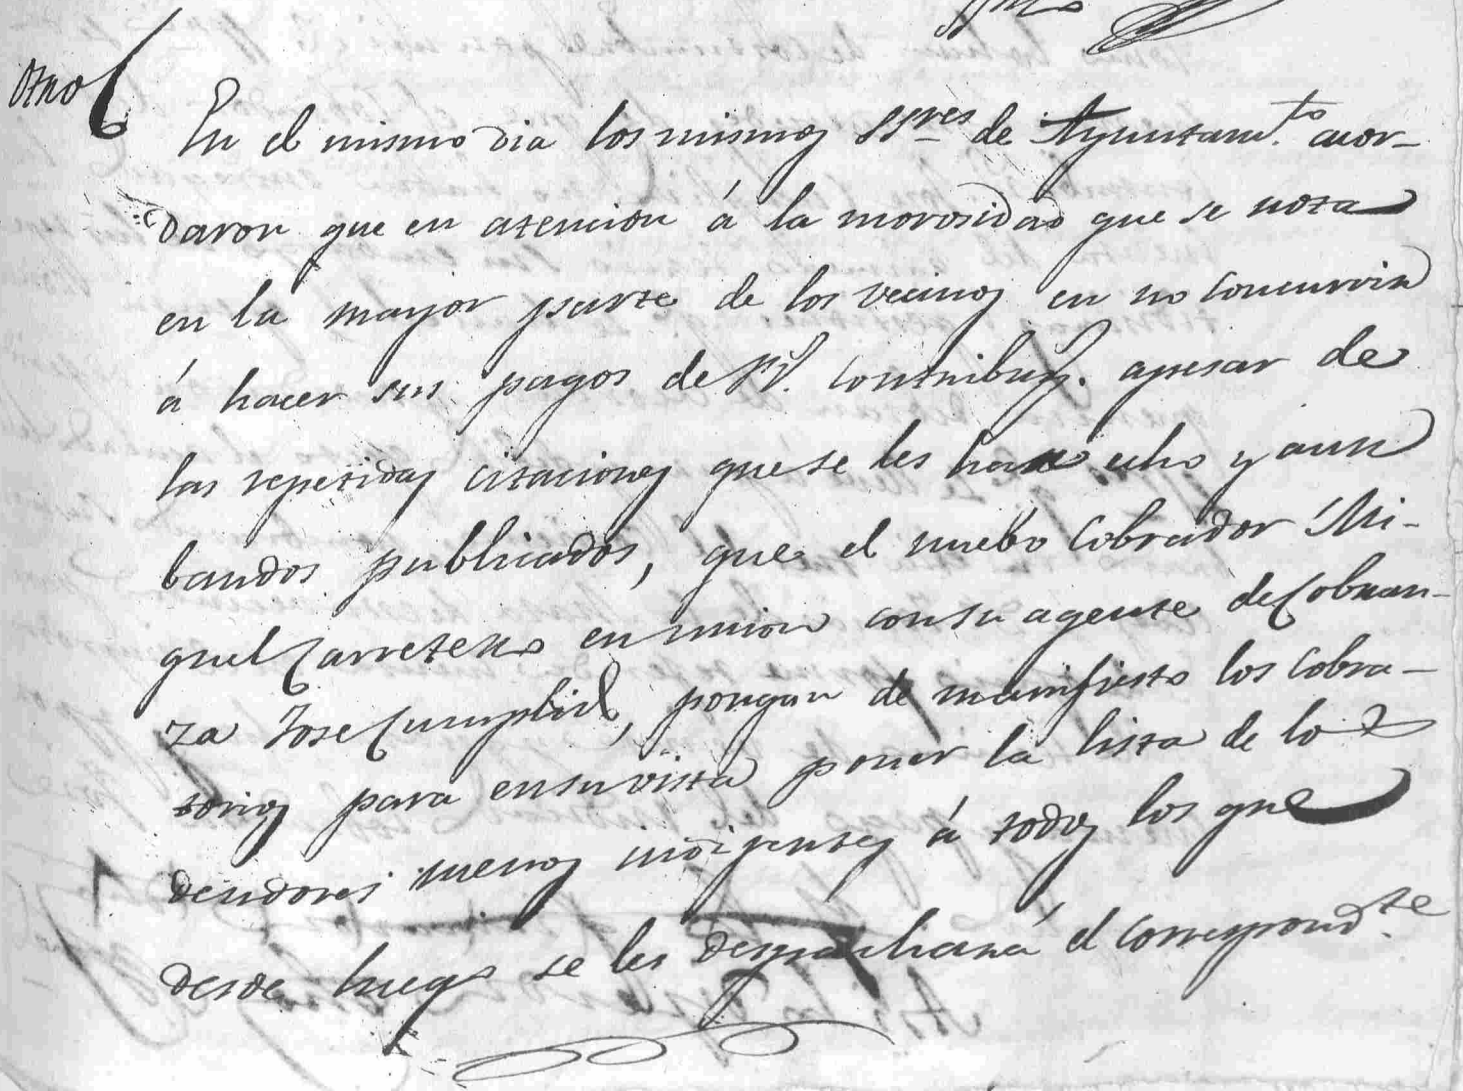 Otro
En el mismo dia los mismos SSres de Ayuntam.to acor-
daron que en atencion á la morosidad que se nota
en la mayor parte de los vecinos en no concurrir
á hacer sus pagos de Rl. Contribuz. apesar de
las repetidas citaciones que se les han echo y aun
bandos publicados, que el nuebo Cobrador Mi-
guel Carretero en union con su agente de Cobran-
za Jose Cumplid, pongan de manifiesto los Cobra-
torios para en su vista poner la lista de los
deudores menos indigentes á todos los que
desde luego se les despachará el correspond.te